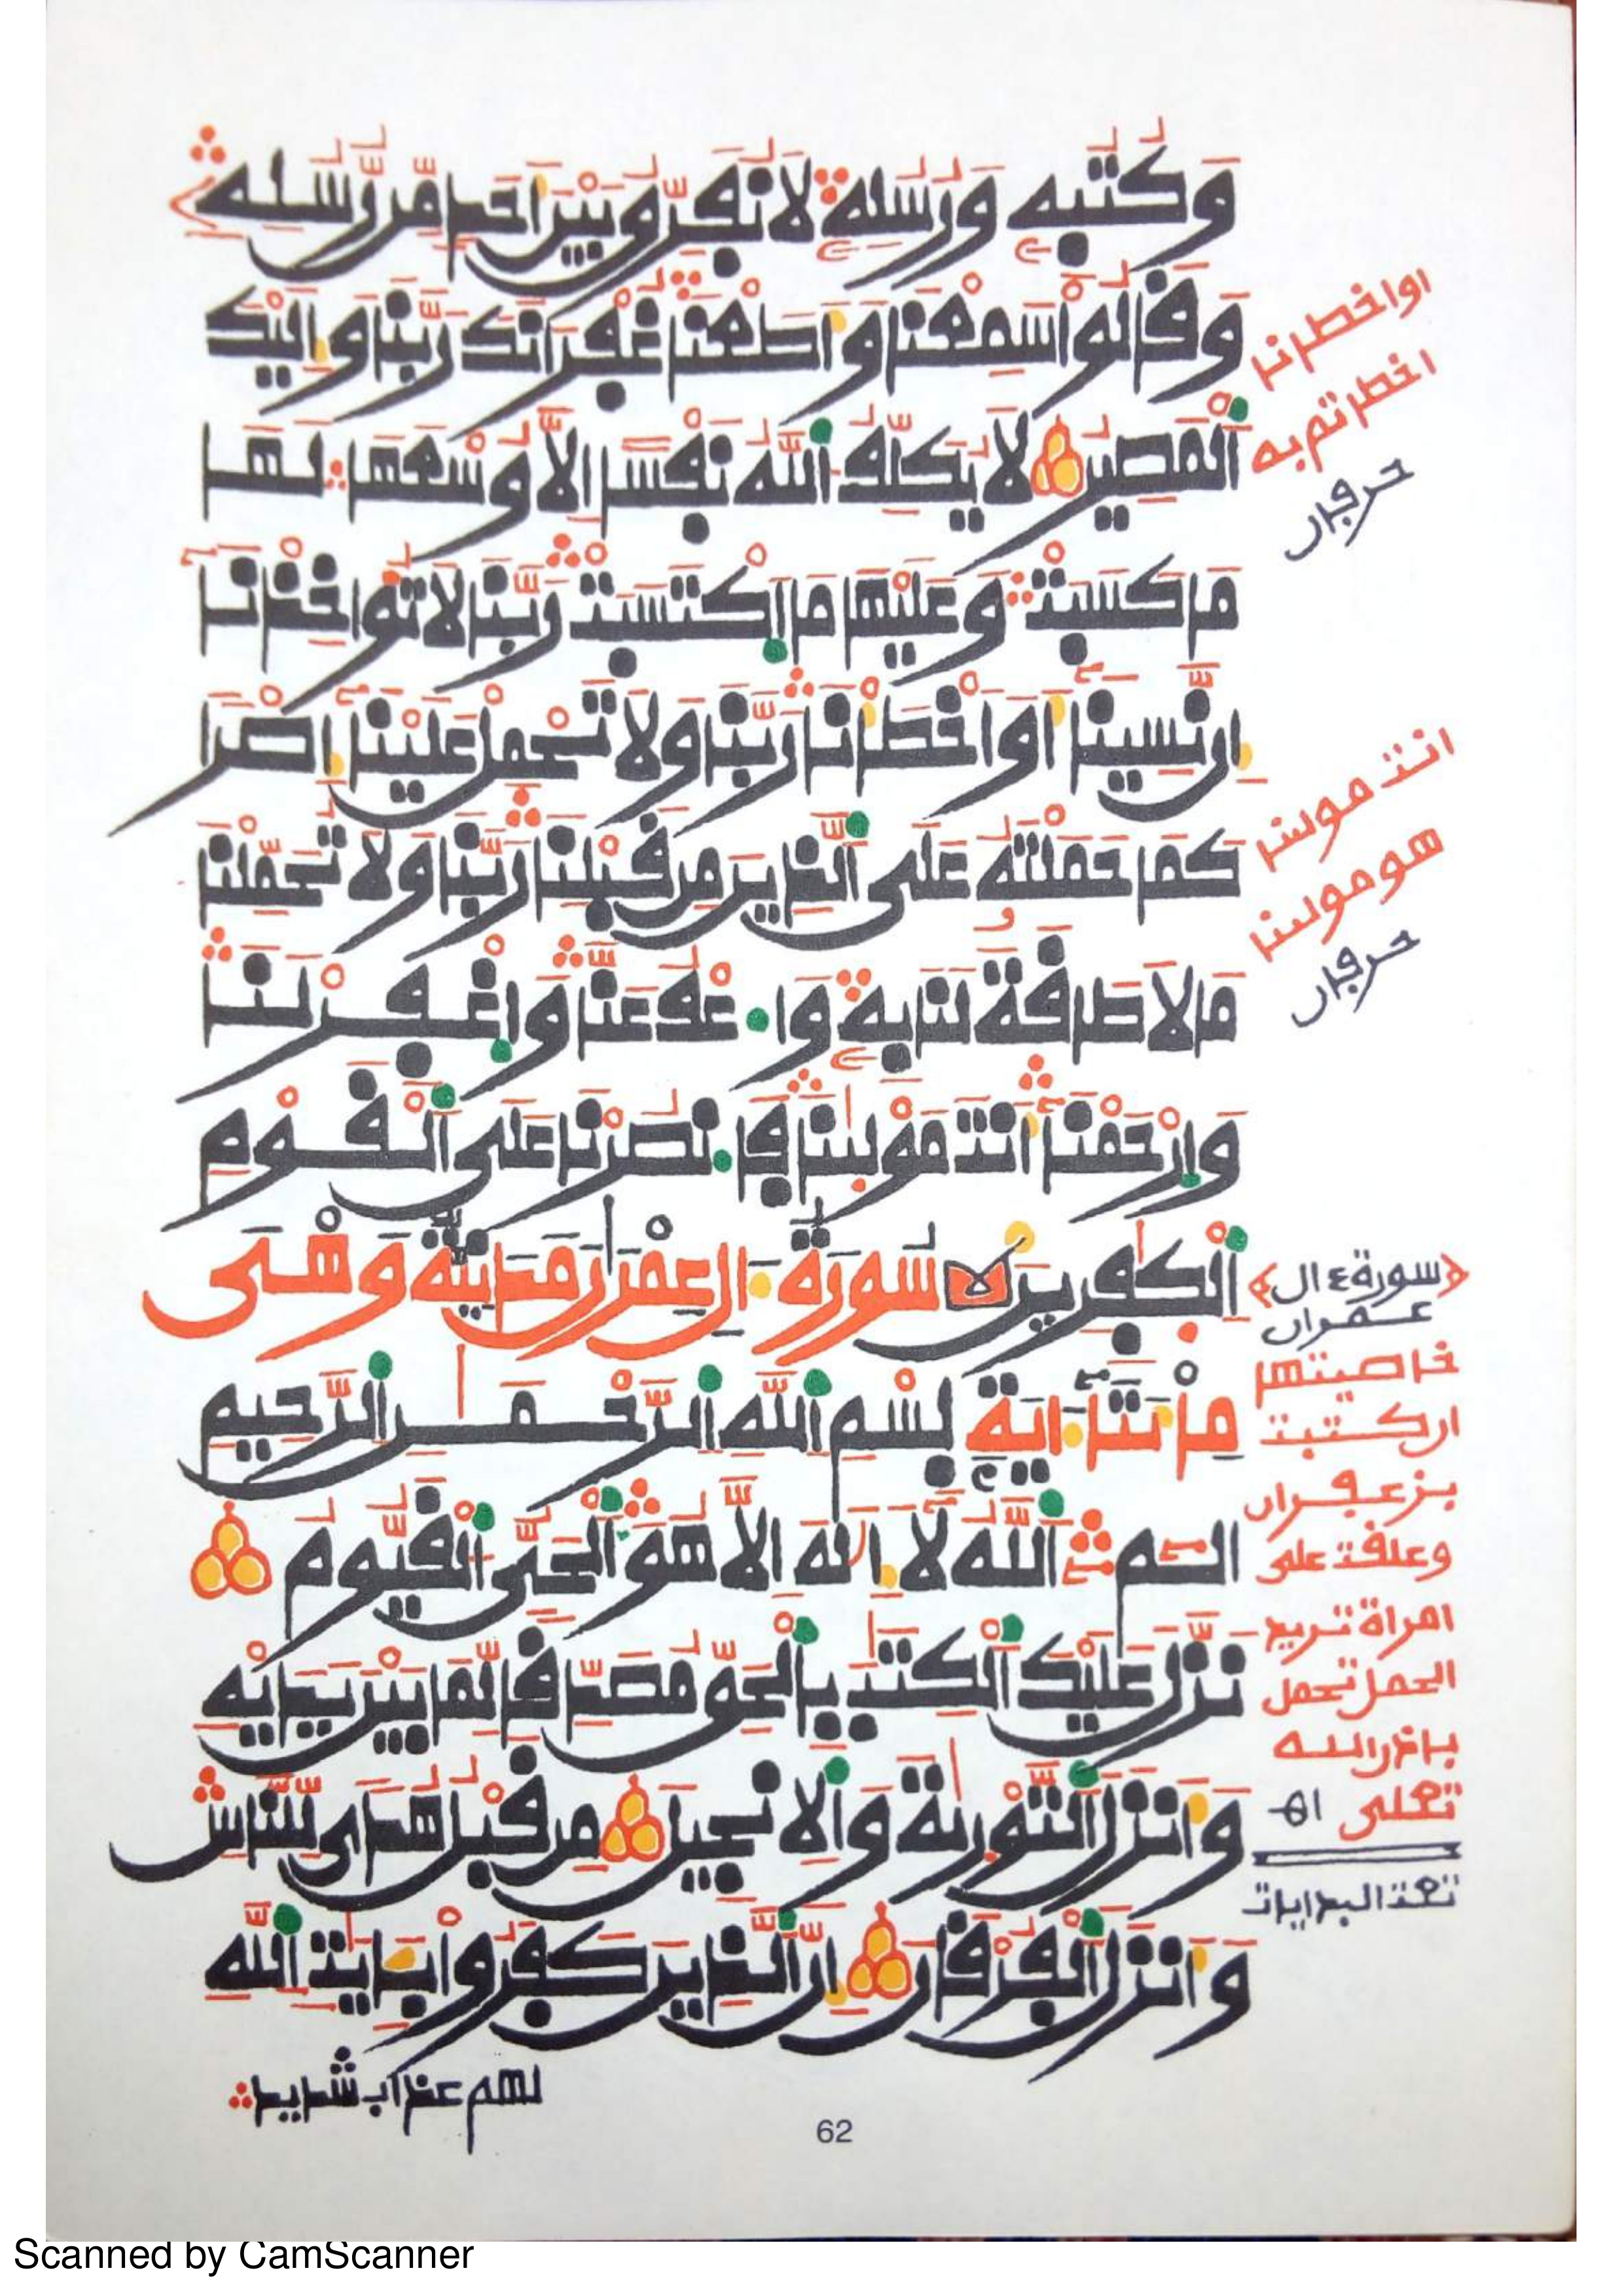 وَكُتُبِهِ وَرُسُلِهِ لَا نُفَرِّقُ بَيْنَ أَحَدٍ مِّن رُّسُلِهِ
وَقَالُوا سَمِعْنَا وَأَطَعْنَا غُفْرَانَكَ رَبَّنَا وَإِلَيْكَ
الْمَصِيرُ لَا يُكَلِّفُ اللَّهُ نَفْسًا إِلَّا وُسْعَهَا لَهَا
مَا كَسَبَتْ وَعَلَيْهَا مَا اكْتَسَبَتْ رَبَّنَا لَا تُوَاخِذْنَا
إِن نَّسِينَا أَوْ أَخْطَأْنَا رَبَّنَا وَلَا تَحْمِلْ عَلَيْنَا إِصْرًا
كَمَا حَمَلْتَهُ عَلَى الَّذِينَ مِن قَبْلِنَا رَبَّنَا وَلَا تُحَمِّلْنَا
مَا لَا طَاقَةَ لَنَا بِهِ وَاعْفُ عَنَّا وَاغْفِرْ لَنَا
وَارْحَمْنَا أَنتَ مَوْلَىٰنَا فَانصُرْنَا عَلَى الْقَوْمِ
الْكَٰفِرِينَ سُورَةُ ءَالِ عِمْرَانَ مَدَنِيَّةٌ وَهْىَ
مِاْئَتَا ءَايَةٍ بِسْمِ اللَّهِ الرَّحْمَٰنِ الرَّحِيمِ
الٓمٓ اللَّهُ لَا إِلَٰهَ إِلَّا هُوَ الْحَىُّ الْقَيُّومُ
نَزَّلَ عَلَيْكَ الْكِتَٰبَ بِالْحَقِّ مُصَدِّقًا لِّمَا بَيْنَ يَدَيْهِ
وَأَنزَلَ التَّوْرَىٰةَ وَالْإِنجِيلَ مِن قَبْلُ هُدًى لِّلنَّاسِ
وَأَنزَلَ الْفُرْقَانَ إِنَّ الَّذِينَ كَفَرُوا بِـَٔايَٰتِ اللَّهِ
لهم عذاب شديد
اواخطانا
اخطاتم به
حرفان
انت مولىنا
هو مولىنا
حرفان
سورة ءال
عمران
خاصيتها
ان كتبت
بزعفران
وعلقت على
امراة تريد
الحمل تحمل
باذن الله
تعلى اه
62
Scanned by CamScanner